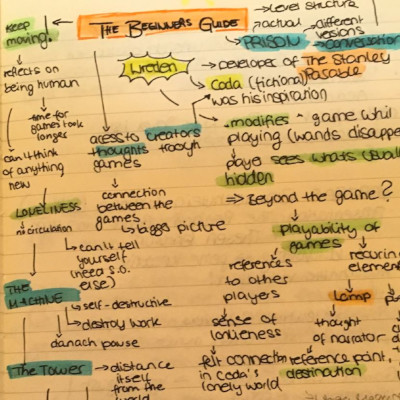 KEEP moving!
reflects on
being human
time for
games took
longer
can't think
of anything
new
LONELINESS
no circulation
can't tell
yourself
(need s.o.
else)
THE MACHINE
self-destructive
destroy work
danach pause
The Tower
distance
itself
from the
THE BEGINNERS GUIDE
acess to creators
thoughts trough
games
connection
between the
games
bigger picture
level structure
actual
different
versions
PRISON
conversation
Wreden
developer of The Stanley
Parable
Coda (fictional)
was his inspiration
modifies game whil
playing (wands disappe
player sees whats usuall
hidden
Beyond the game?
playability of
games
references
to other
players
sense of
lonlieness
felt connection
in Coda's
lonely world
recuring
element
Lamp
thought
of narrator
reference point,
destination